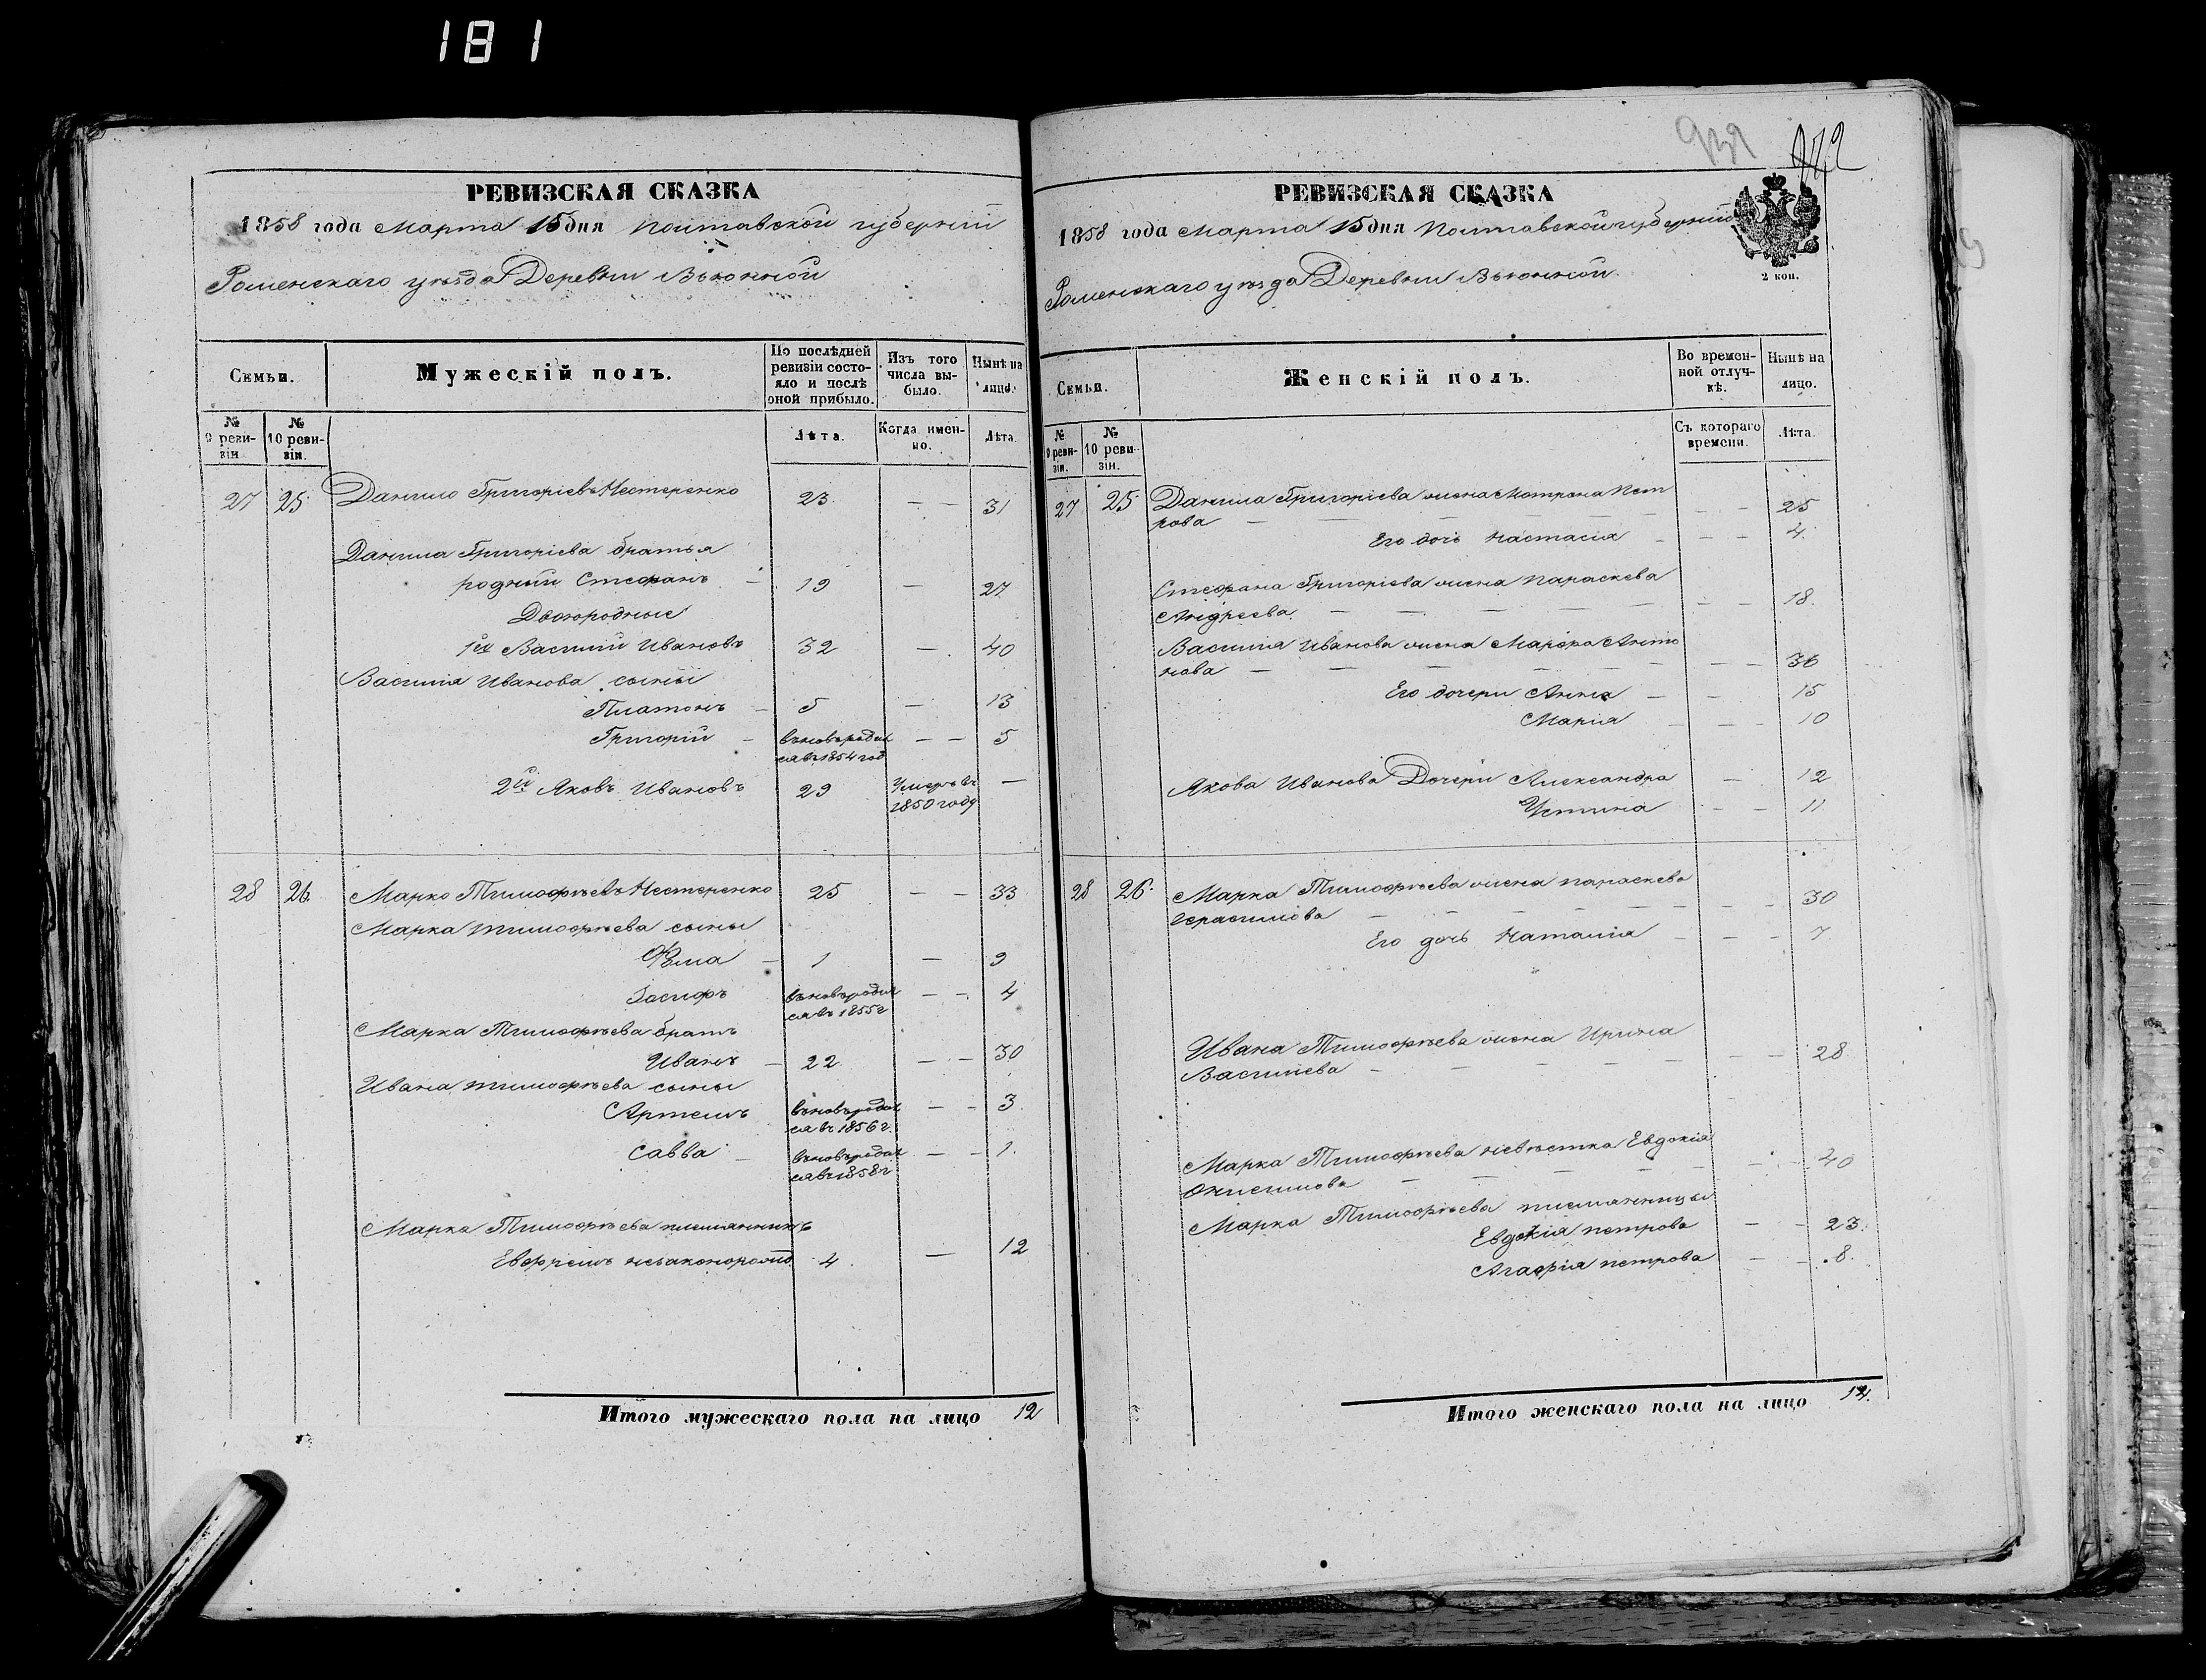 181
РЕВИЗСКАЯ СКАЗКА
1858 года Марта 15 дня Полтавской губерніи
Роменскаго уѣзда Деревни Вьюнной
Семьи.
Мужескій полъ.
По послѣдней ревизіи состояло и послѣ оной прибыло.
Изъ того числа выбыло.
Нынѣ на лицо.
№ 9 ревизіи
№ 10 ревизіи.
Лѣта.
Когда именно.
Лѣта
27 25 Данило Григоріевъ Нестеренко 23 — — 31
Данила Григоріева братья
родный Стефанъ — 19 — 27
Двоюродные
1й Василий Ивановъ 32 — 40
Василия Иванова сыны
Платонъ — 5 — 13
Григорій — вновь родил — — 5
ся въ 1854 год
2й Яковъ Ивановъ 29 Умеръ въ —
1850 году
28 26 Марко Тимофѣевъ Нестеренко 25 — — 33
Марка Тимофѣева сыны
Фома — 1 — 9
Іосифъ вновь родил — — 4
ся въ 1855 г
Марка Тимофѣева братъ
Иванъ — 22 — — 30
Ивана Тимофѣева сыны
Артемъ вновь родил — — 3
ся въ 1856 г.
Савва — вновь родил — — 1
ся въ 1858 г
Марка Тимофѣева племянникъ
Евфремъ незаконорожд 4 — 12
Итого мужескаго пола на лицо 12
РЕВИЗСКАЯ СКАЗКА
1858 года Марта 15 дня Полтавской губерніи
2 коп.
Роменскаго уѣзда Деревни Вьюнной
Семьи.
Женскій полъ.
Во временной отлучкѣ.
Нынѣ на лицо.
№ 9 ревизіи.
№ 10 ревизіи.
Съ котораго времени.
Лѣта.
27 25 Данила Григоріева жена Мотрона Пет
рова — — — — — — — 25
Его дочь Настасія — — — 4
Стефана Григоріева жена Параскева
Андреева — — — — — — — 18
Василия Иванова жена Марфа Анто
нова — — — — — — — 36
Его дочери Анна — — 15
Марія — — — 10
Якова Иванова Дочери Александра — 12
Устина — — 11
28 26 Марка Тимофѣева жена Параскева
Герасимова — — — — — — — 30
Его дочь Наталія — — — 7
Ивана Тимофѣева жена Ирина
Василиева — — — — — — 28
Марка Тимофѣева невѣстка Евдокія
Онисимова — — — — — — 40
Марка Тимофѣева племянницы
Евдокія Петрова — — 23
Агафія Петрова — — 8
Итого женскаго пола на лицо